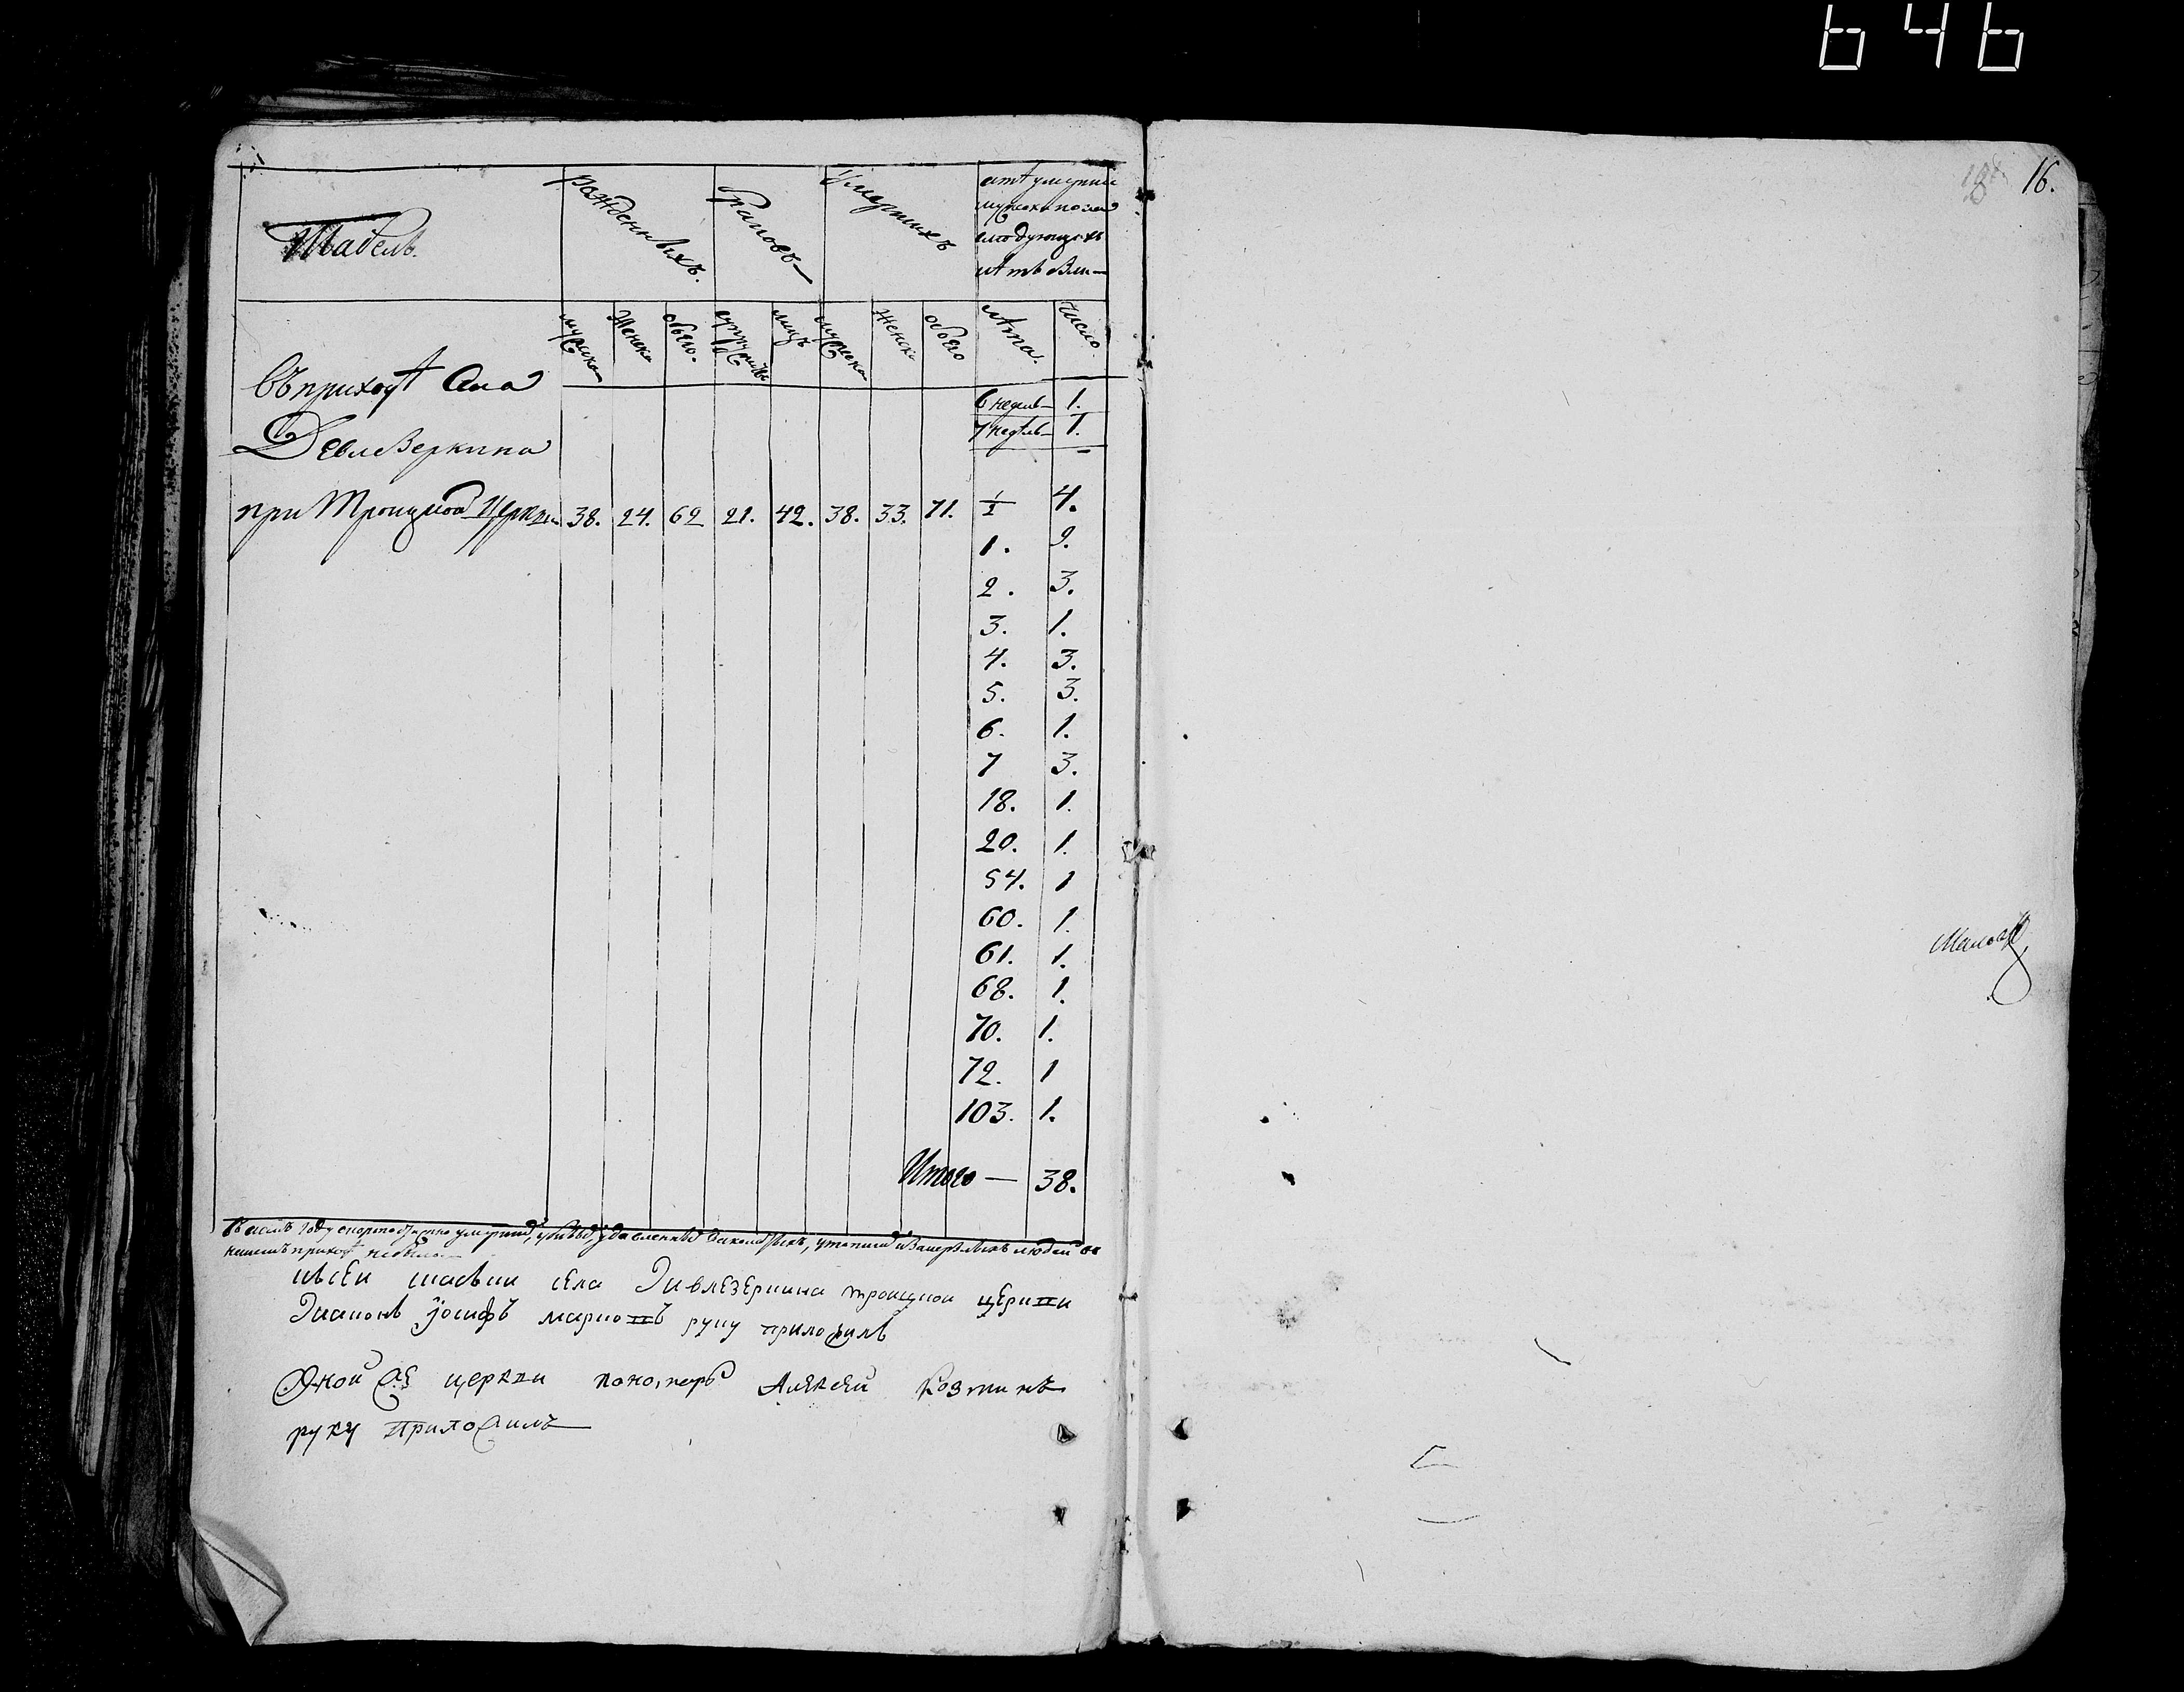 646
16.
Табель.
рожденныхъ.
браковъ
Умершихъ
умерших
мужска пола
следующихъ
лѣтъ
мужска
Женска
обоего.
лицъ
мужска
женска
обоего
лѣта.
число.
въ приходѣ Села
Девлезеркина
при Троицкой Церкви 38. 24. 62 21. 42. 38. 33. 71.
6 недель 1.
7 недѣль 1.
1/2 4.
1. 9.
2. 3.
3. 1.
4. 3.
5. 3.
6. 1.
7 3.
18. 1.
20. 1.
54. 1
60. 1.
61. 1.
68. 1.
70. 1.
72. 1
103. 1.
Итого — 38.
году скоропостижно умерших, удавленных утопших людей въ
нашемъ приходѣ небыло
села Дивлезеркина троицкой церкви
Диаконъ Іосифъ марковъ руку приложилъ
Оной же церкви пономарь Алексей Козминъ
руку приложилъ